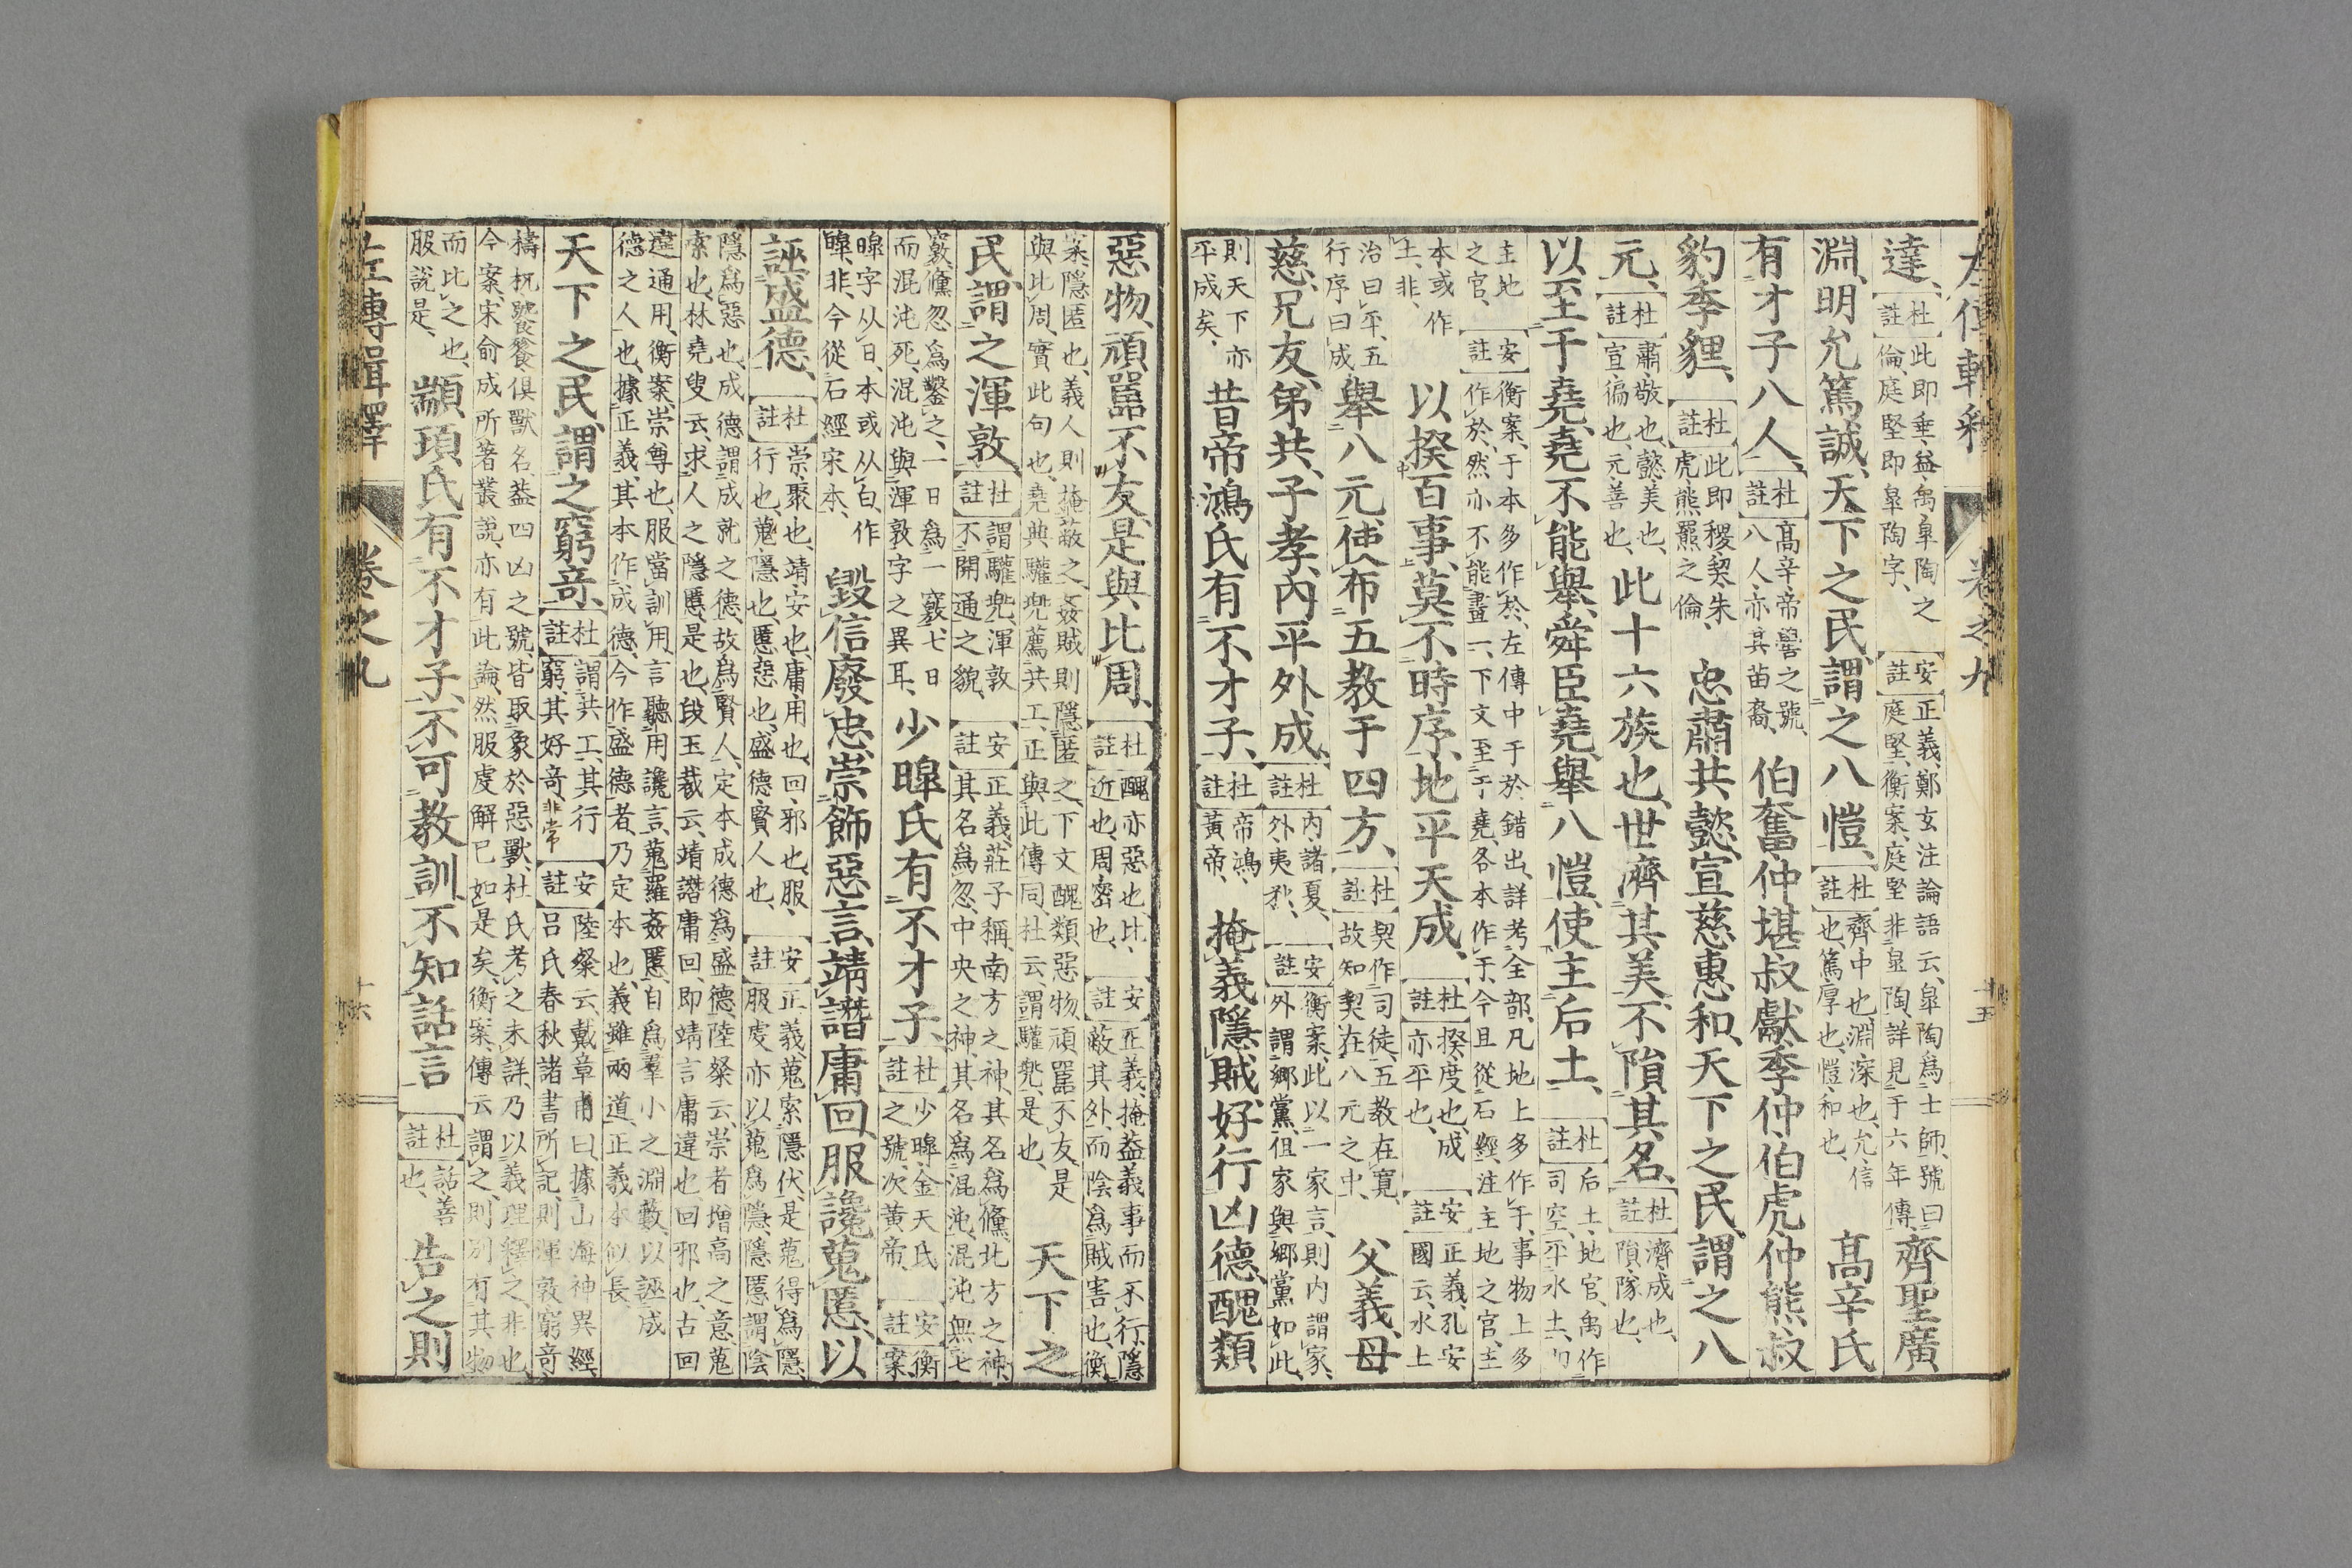 左傳輯釋 卷之九 十五
達、【杜註】此即垂益禹皐陶之倫、庭堅即皐陶字、【安註】正義、鄭玄注論語云、皐陶爲士師、號曰庭堅、衡案、庭堅非皐陶、詳見于六年傳、齊聖廣
淵、明允篤誠、天下之民、謂之八愷、【杜註】齊中也、淵深也、允信也、篤厚也、愷和也、高辛氏
有才子八人、【杜註】高辛帝嚳之號、八人亦其苗裔、伯奮、仲堪、叔獻、季仲、伯虎、仲熊、叔
豹、季貍、【杜註】此即稷契朱虎熊羆之倫、忠肅共懿、宣慈惠和、天下之民、謂之八
元、【杜註】肅敬也、懿美也、宣徧也、元善也、此十六族也、世濟其美、不隕其名、【杜註】濟成也、隕隊也、
以至于堯、堯不能舉、舜臣堯、舉八愷、使主后土、【杜註】后土地官、禹作司空、平水土、即
主地之官、【安註】衡案、于本多作於、左傳中于於錯出、詳考全部、凡地上多作于、事物上多作於、然亦不能畫一、下文至于堯、各本作于、今且從石經、注主地之官、主
本或作土、非、以揆百事、莫不時序、地平天成、【杜註】揆度也、成亦平也、【安註】正義、孔安國云、水土
治曰平、五行序曰成、舉八元、使布五教于四方、【杜註】契作司徒、五教在寬、故知契在八元之中、父義、母
慈、兄友、弟共、子孝、內平外成、【杜註】內諸夏、外夷狄、【安註】衡案、此以一家言、則內謂家、外謂鄉黨、但家與鄉黨如此、
則天下亦平成矣、昔帝鴻氏有不才子、【杜註】帝鴻、黃帝、掩義隱賊、好行凶德、醜類
惡物、頑嚚不友、是與比周、【杜註】醜亦惡也、比近也、周密也、【安註】正義、掩蓋義事而不行、隱蔽其外、而陰爲賊害也、衡
案、隱匿也、義人則掩蔽之、姦賊則隱匿之、下文醜類惡物、頑嚚不友、是與比周、實此句也、堯典、驩兜薦共工、正與此傳同、杜云、謂驩兜、是也、天下之
民、謂之渾敦、【杜註】謂驩兜、渾敦不開通之貌、【安註】正義、莊子稱、南方之神、其名爲儵、北方之神、其名爲忽、中央之神、其名爲混沌、混沌無七
竅、儵忽爲鑿之、一日爲一竅、七日而混沌死、混沌與渾敦字之異耳、少皥氏有不才子、【杜註】少皥、金天氏之號、次黃帝、【安註】衡案、
皥字从日、本或从白、作皞、非、今從石經宋本、毀信廢忠、崇飾惡言、靖譖庸回、服讒蒐慝、以
誣盛德、【杜註】崇聚也、靖安也、庸用也、回邪也、服行也、蒐隱也、慝惡也、盛德賢人也、【安註】正義、蒐索隱伏、是蒐得爲隱、服虔亦以蒐爲隱、隱慝謂陰
隱爲惡也、成德謂成就之德、故爲賢人、定本成德爲盛德、陸粲云、崇者增高之意、蒐索也、林堯叟云、求人之隱慝是也、段玉裁云、靖譖庸回即靖言庸違也、回邪也、古回
違通用、衡案、崇尊也、服當訓用、言聽用讒言、蒐羅姦慝、自爲羣小之淵藪、以誣成德之人也、據正義、其本作成德、今作盛德者、乃定本也、義雖兩道、正義本似長、
天下之民、謂之窮奇、【杜註】謂共工、其行窮、其好奇非常【安註】陸粲云、戴章甫曰、據山海神異經、呂氏春秋諸書所記、則渾敦窮奇
檮杌饕餮俱獸名、蓋四凶之號、皆取象於惡獸、杜氏考之未詳、乃以義理釋之、非也、今案、宋俞成所著叢說、亦有此論、然服虔解已如是矣、衡案、傳云謂之、則別有其物
而比之也、服說是、顓頊氏有不才子、不可教訓、不知話言、【杜註】話善也、告之則
左傳輯釋 卷之九 十六